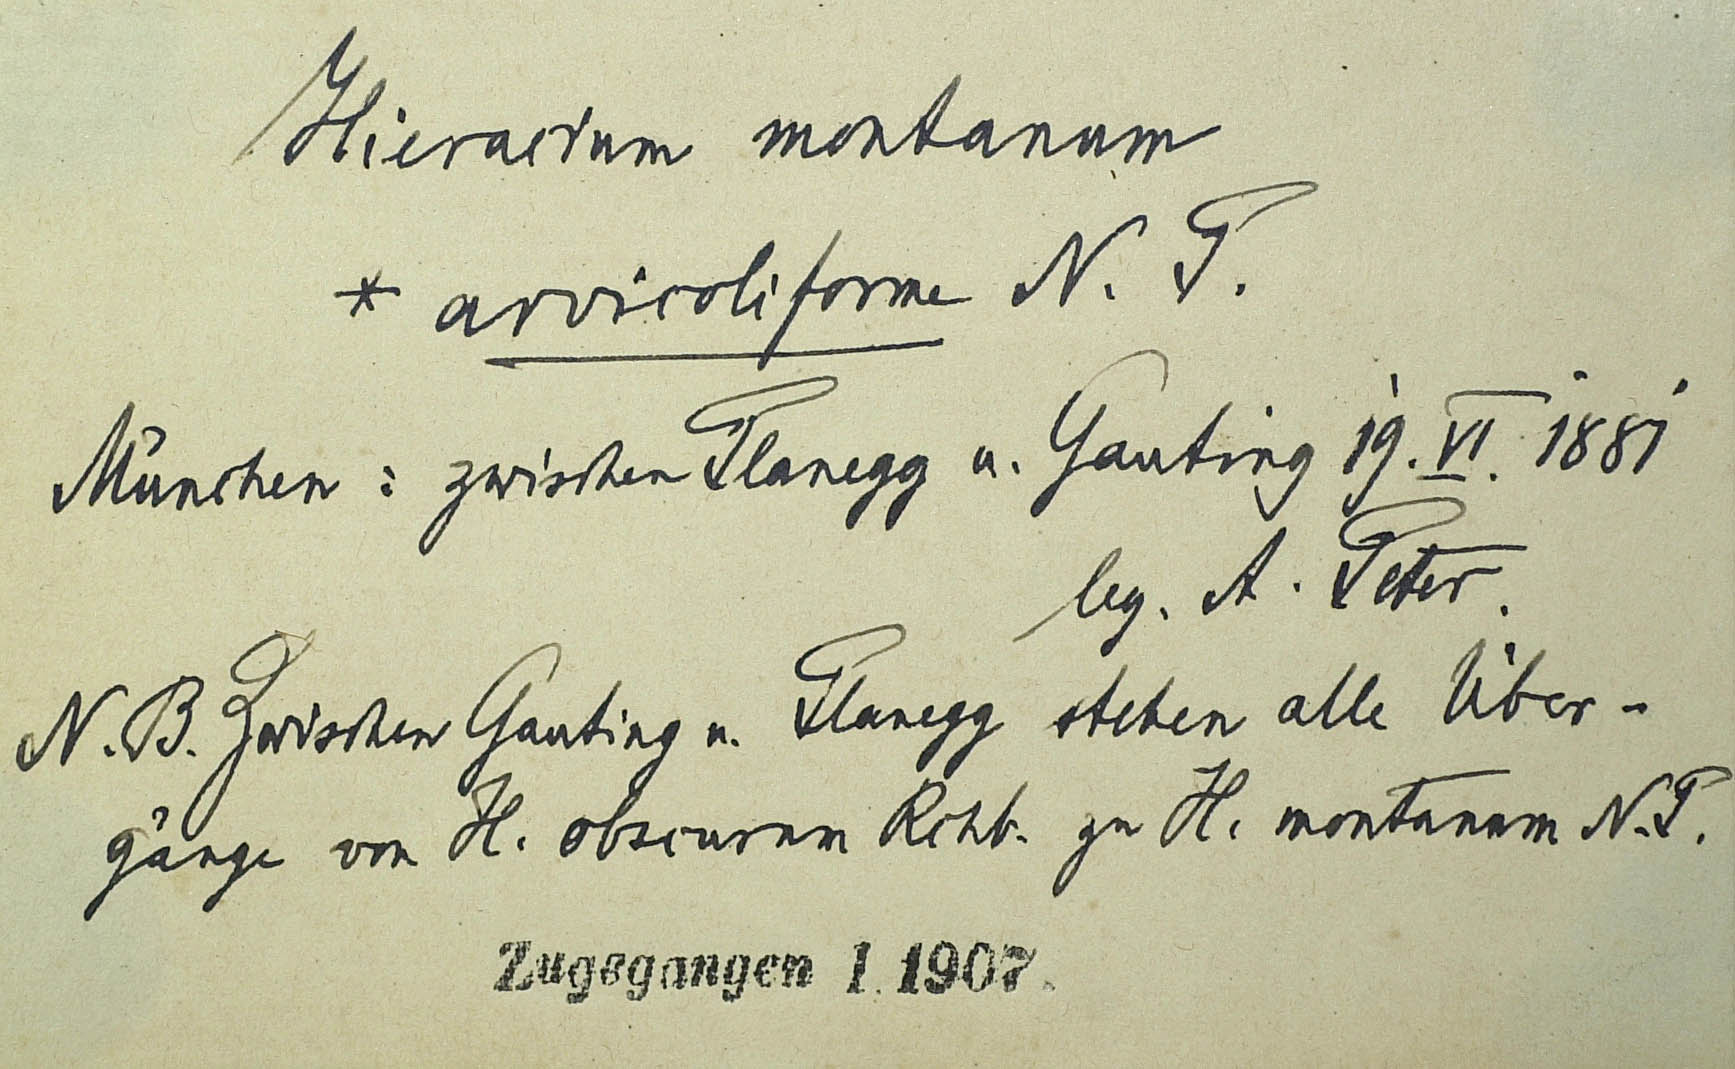 Hieracium montanum
* arvicoliforme N. P.
München : zwischen Planegg u. Gauting 19. VI. 1881
leg. A. Peter.
N. B. Zwischen Gauting u. Planegg stehen alle Über-
gänge von H. obscurum Rchb. zu H. montanum N. P.
Zugegangen 1. 1907.